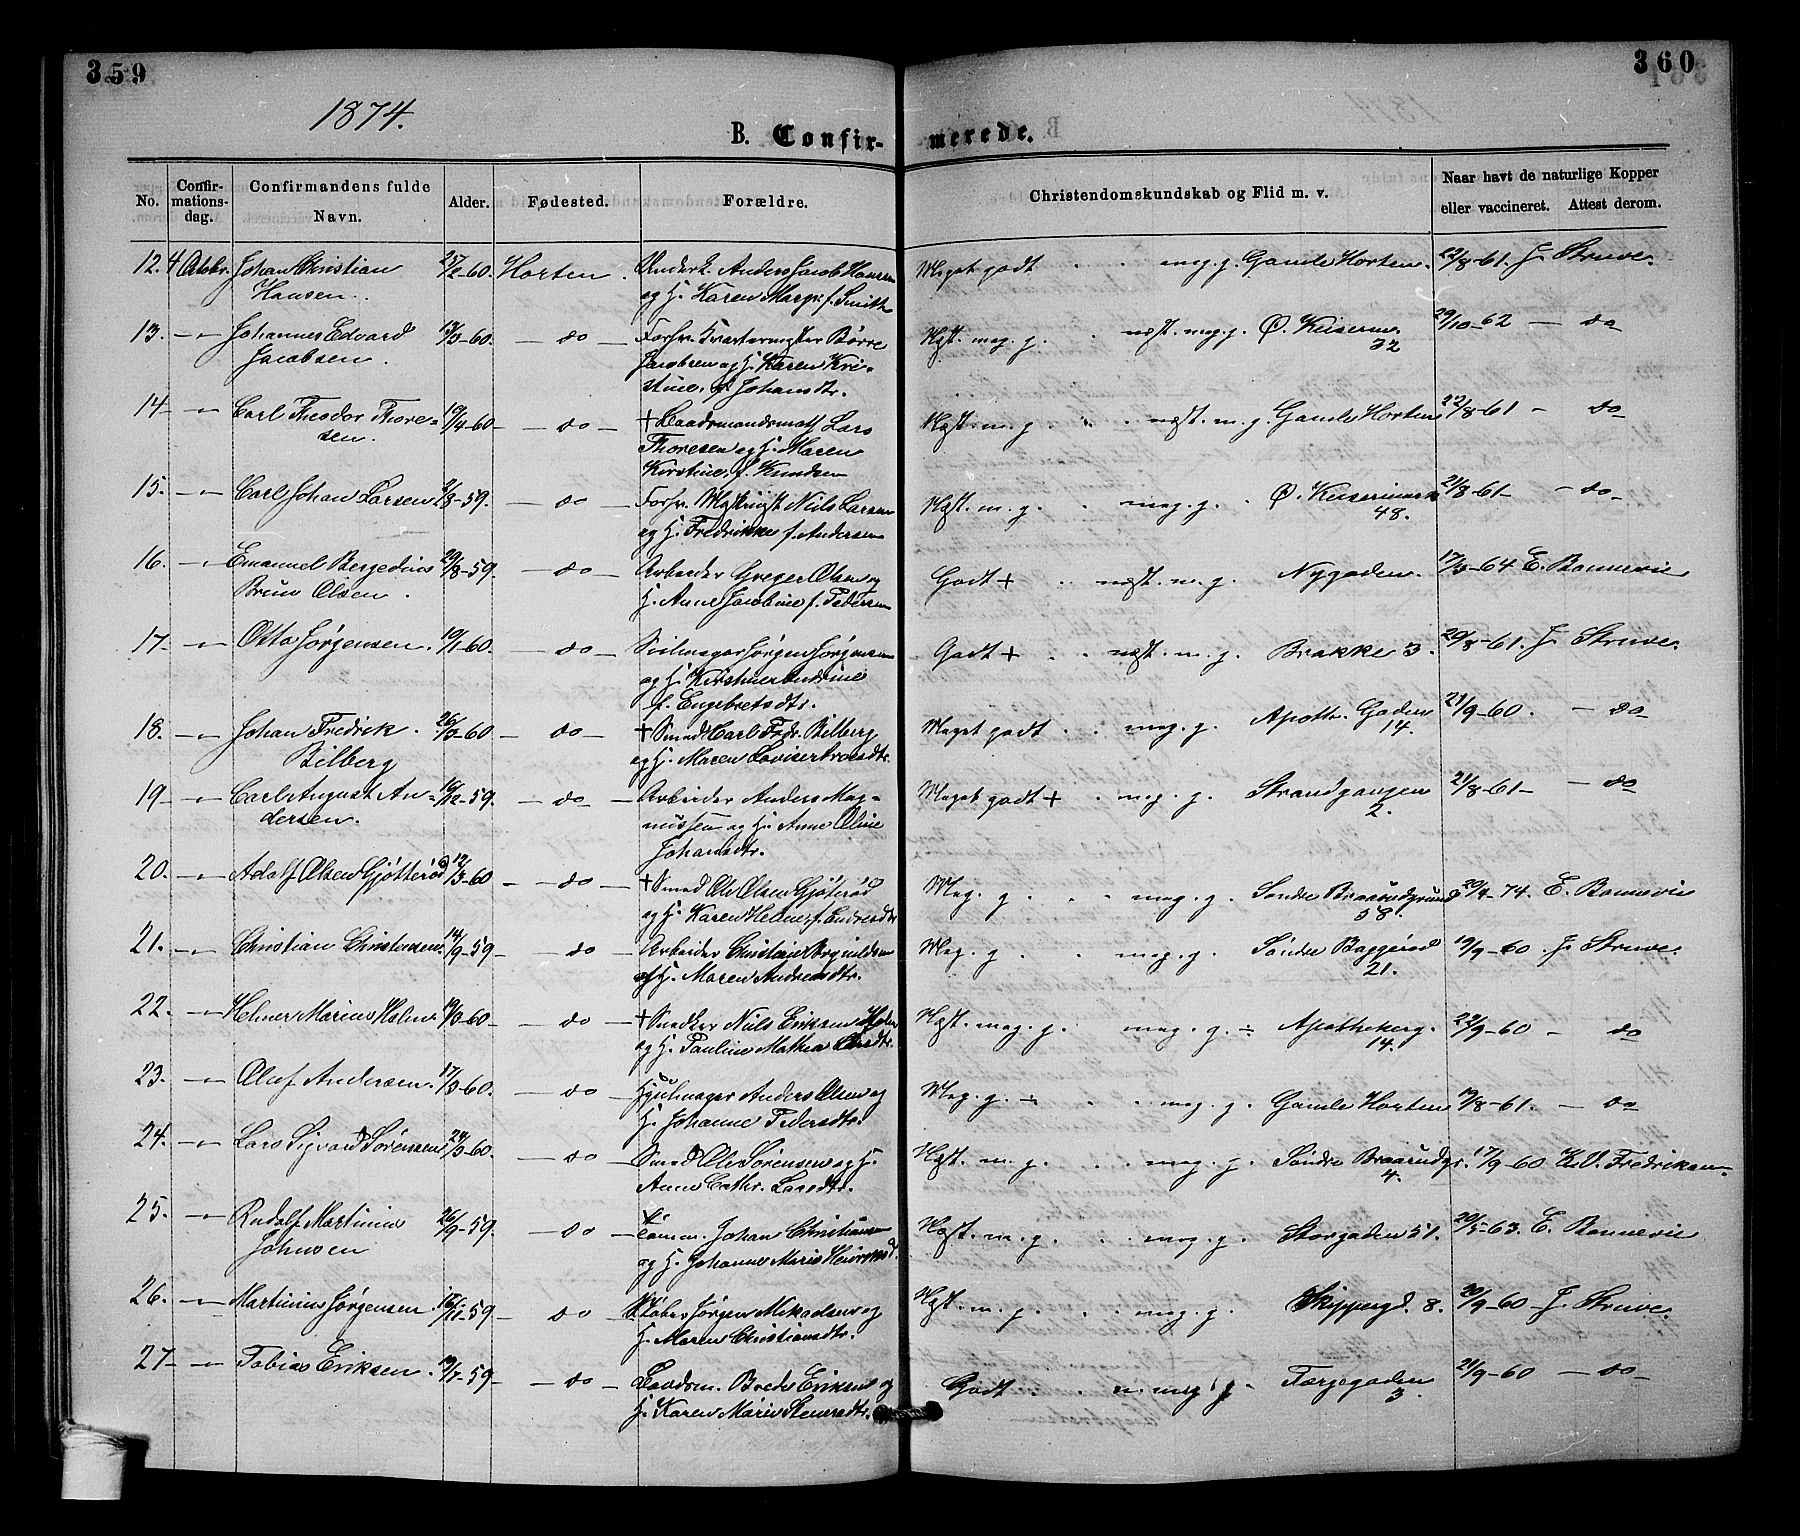 359
360
1874.
B. Confir-
merede.
No.
Confir-
mations-
dag.
Confirmandens fulde
Navn.
Alder.
Fødested.
Forældre.
Christendomskundskab og Flid m. v.
Naar havt de naturlige Kopper
eller vaccineret. Attest derom.
12. 4 Octbr. Johan Christian 60. Horten. Anders Jacob Hansen Meget godt . . meg. g. Gamle Horten. 22/8-61. J. Struve.
Hansen. og H. Karen Margr. f. Smith
13. -"- Johannes Edvard 60. - do - Forhv. Kvartermester Børre Næst. meg. g. . . næst. meg. g. Ø. Keiserm. 29/10-62 - do
Jacobsen. Jacobsen og H. Karen Kri- 32
stine, f. Johansdtr.
14 -"- Carl Theodor Thore- 19/4-60. - do - † Lars Næst. m. g. . . næst. m. g. Gamle Horten 22/8-61 - do
sen. Thoresen og H. Maren
Kirstine, f. Knudsen
15. -"- Carl Johan Larsen 8-59. - do - Forhv. Niels Larsen Næst. m. g. . . meg. g. . Ø. Keiserm. 21/8-61- - do
og H. Fredrikke f. Andersen 48.
16. -"- Emanuel Bergedius 29/8-59. - do - Arbeider Greger Olsen og Godt + . . næst. m. g. Nygaden. 64 E. Bonnevie
Bruun Olsen. H. Anne Jacobine f. Pedersen
17. -"- Otto Jørgensen. 19/1-60. - do - Seilmager Jørgen Jørgensen Godt + . . næst. m. g. Brakke 3. 20/8-61. J. Struve.
og H. Kirstine Andrine
f. Engebretsdtr.
18. -"- Johan Fredrik 60 - do - † Smed Carl Fredr. Bilberg Meget godt . . meg. g. Apoth. Gaden 21/9-60. - do
Bilberg og H. Maren Lovise 14.
19 -"- Carl August An- 12-59. - do - Arbeider Anders Mag- Meget godt + . meg. g. Strandgangen 21/8-61- - do
dersen. nussen og H. Anne Oline 2.
Johansdtr.
20. -"- Adolf Olsen Gjøtterød 12/3-60 - do - † Smed Ole Olsen Gjøterød Meg. g. . . meg. g. Søndre Braarudgrund 74. E. Bonnevie
og H. Karen Helene, f. 58.
21. -"- Christian Christensen 14/9-59 - do - Arbeider Christian Meg. g. . . meg. g. Søndre Baggerød 19/9-60 J. Struve.
og H. Maren Andreasdtr. 21.
22. -"- Helmer Marius Holm 60 - do - † Snedker Niels Eriksen Holm Næst. meg. g. meg. g. ÷ Apothekerg. 22/9-60 - do
og H. Pauline Mathea Larsdtr. 14.
23. -"- Oluf Andersen. 17/3-60. - do - Hjulmager Anders Olsen og Meg. g. ÷ . . meg. g. Gamle Horten 8-61. - do
H. Johanne Pedersdtr.
24. -"- Lars Sigvard Sørensen 60. - do - Smed Ole Sørensen og H. Næst. m. g. . . meg. g. Søndre Braarudgr. 17/9-60 K. V. Fredriksen
Anne Cathr. Larsdtr. 4.
25. -"- Rudolf Martinius 26/9-59. - do - Tømm. Johan Christiansen Næst. m. g. . . meg. g. Storgaden 51. 20/5-63. E. Bonnevie
Johnsen og H. Johanne Marie
26. -"- Martinius Jørgensen. 59 - do - Jørgen Mikaelsen og Næst. m. g. . . meg. g. Skippergd. 8. 20/9-60 J. Struve
H. Maren Christiansdtr.
27- -"- Tobias Eriksen. 59- - do - Baadsm. Brede Eriksen og Godt . . n. meg. g. Færgegaden 21/9-60 - do -
H. Karen Marie Stensdtr. 3.